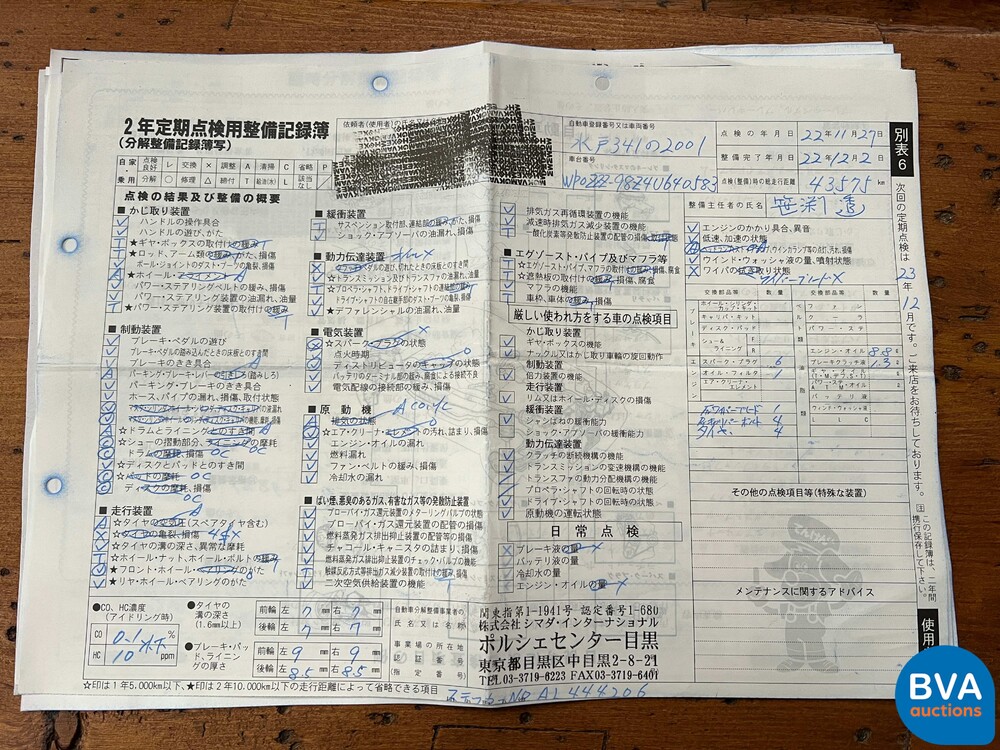 2年定期点検用整備記録簿
(分解整備記録簿写)
依頼者(使用者)の氏名又は名称
自動車登録番号又は車両番号
水戸341の2001
車台番号
点検の年月日 22年11月27日
整備完了年月日 22年12月2日
点検(整備)時の総走行距離 43575 km
整備主任者の氏名
別表6
自家・乗用
点検良好 レ 交換 × 調整 A 清掃 C 省略 P
分解 ○ 修理 △ 締付 T 給油(水) L 該当なし
点検の結果及び整備の概要
■かじ取り装置
ハンドルの操作具合
ハンドルの遊び、がた
★ギヤ・ボックスの取付けの緩み T
★ロッド、アーム類の緩み、がた、損傷
ボール・ジョイントのダスト・ブーツの亀裂、損傷
★ホイール・アライメント A
パワー・ステアリングベルトの緩み、損傷
パワー・ステアリング装置の油漏れ、油量
★パワー・ステアリング装置の取付けの緩み T
■制動装置
ブレーキ・ペダルの遊び
ブレーキ・ペダルの踏み込んだときの床板とのすき間
ブレーキのきき具合
パーキング・ブレーキ・レバーの引きしろ(踏みしろ)
パーキング・ブレーキのきき具合
ホース、パイプの漏れ、損傷、取付状態
☆ドラムとライニングとのすき間
☆シューの摺動部分、ライニングの摩耗
ドラムの摩耗、損傷
☆ディスクとパッドとのすき間
☆パッドの摩耗
ディスクの摩耗、損傷
■走行装置
☆タイヤの空気圧(スペアタイヤ含む)
☆タイヤの亀裂、損傷
☆タイヤの溝の深さ、異常な摩耗
☆ホイール・ナット、ホイール・ボルトの緩み
★フロント・ホイール・ベアリングのがた
★リヤ・ホイール・ベアリングのがた
■緩衝装置
サスペンション取付部、連結部の緩み、がた、損傷
ショック・アブソーバの油漏れ、損傷
■動力伝達装置
クラッチ・ペダルの遊び、切れたときの床板とのすき間
☆トランスミッション及びトランスファの油漏れ、油量
☆プロペラシャフト、ドライブ・シャフトの連結部の緩み
ドライブ・シャフトの自在継手部のダスト・ブーツの亀裂、損傷
★デファレンシャルの油漏れ、油量
■電気装置
☆スパーク・プラグの状態
点火時期
ディストリビュータのキャップの状態
バッテリのターミナル部の緩み、腐食による接続不良
電気配線の接続部の緩み、損傷
■原動機
排気の状態
☆エア・クリーナ・エレメントの汚れ、詰まり、損傷
エンジン・オイルの漏れ
燃料漏れ
ファン・ベルトの緩み、損傷
冷却水の漏れ
■ばい煙、悪臭のあるガス、有害なガス等の発散防止装置
ブローバイ・ガス還元装置のメターリングバルブの状態
ブローバイ・ガス還元装置の配管の損傷
燃料蒸発ガス排出抑止装置の配管等の損傷
チャコール・キャニスタの詰まり、損傷
燃料蒸発ガス排出抑止装置のチェック・バルブの機能
触媒反応方式等排出ガス減少装置の取付けの緩み、損傷
二次空気供給装置の機能
排気ガス再循環装置の機能
減速時排気ガス減少装置の機能
一酸化炭素等発散防止装置の配管の損傷、取付状態
■エグゾースト・パイプ及びマフラ等
☆エグゾースト・パイプ、マフラの取付けの緩み、損傷、腐食
☆遮熱板の取付けの緩み、損傷、腐食
マフラの機能
車枠、車体の緩み、損傷
厳しい使われ方をする車の点検項目
かじ取り装置
ギヤ・ボックスの機能
ナックル又はかじ取り車輪の旋回動作
制動装置
倍力装置の機能
走行装置
リム又はホイール・ディスクの損傷
緩衝装置
シャシばねの緩衝能力
ショック・アブソーバの緩衝能力
動力伝達装置
クラッチの断続機構の機能
トランスミッションの変速機構の機能
トランスファの動力分配機構の機能
プロペラ・シャフトの回転時の状態
ドライブ・シャフトの回転時の状態
原動機の運転状態
日常点検
ブレーキ液の量 X
バッテリ液の量
冷却水の量
エンジン・オイルの量 X
エンジンのかかり具合、異音
低速、加速の状態
ウインド・ウォッシャ液の量、噴射状態
ワイパの拭き取り状態
交換部品等 数量 交換部品等 数量
ホイール・シリンダ・カップ・キット
キャリパ・キット
ディスク・パッド
シュー&ライニング F R
スパーク・プラグ 6
オイル・フィルター 1
エア・クリーナ・エレメント
エンジン・オイル 8.8 ℓ
ブレーキクラッチ液 1.3 ℓ
タイヤ 4
その他の点検項目等(特殊な装置)
メンテナンスに関するアドバイス
次回の定期点検は 23年12月です。ご来店をお待ちしております。
注 この記録簿は、二年間携行保存して下さい。
使用
●CO、HC濃度
(アイドリング時)
CO 0.1 %
HC 10 ppm
●タイヤの溝の深さ
(1.6mm以上)
前輪 左 7 mm 右 7 mm
後輪 左 7 mm 右 7 mm
●ブレーキ・パッド、ライニングの厚さ
前輪 左 9 mm 右 9 mm
後輪 左 8.5 mm 右 8.5 mm
自動車分解整備事業者の氏名又は名称
事業場の所在地
認証番号
(指定番号)
関東指第1-1941号 認定番号1-680
株式会社 シマダ・インターナショナル
ポルシェセンター目黒
東京都目黒区中目黒2-8-21
TEL03-3719-6223 FAX03-3719-6401
☆印は1年5,000km以下、★印は2年10,000km以下の走行距離によって省略できる項目
AL444206
BVA
auctions